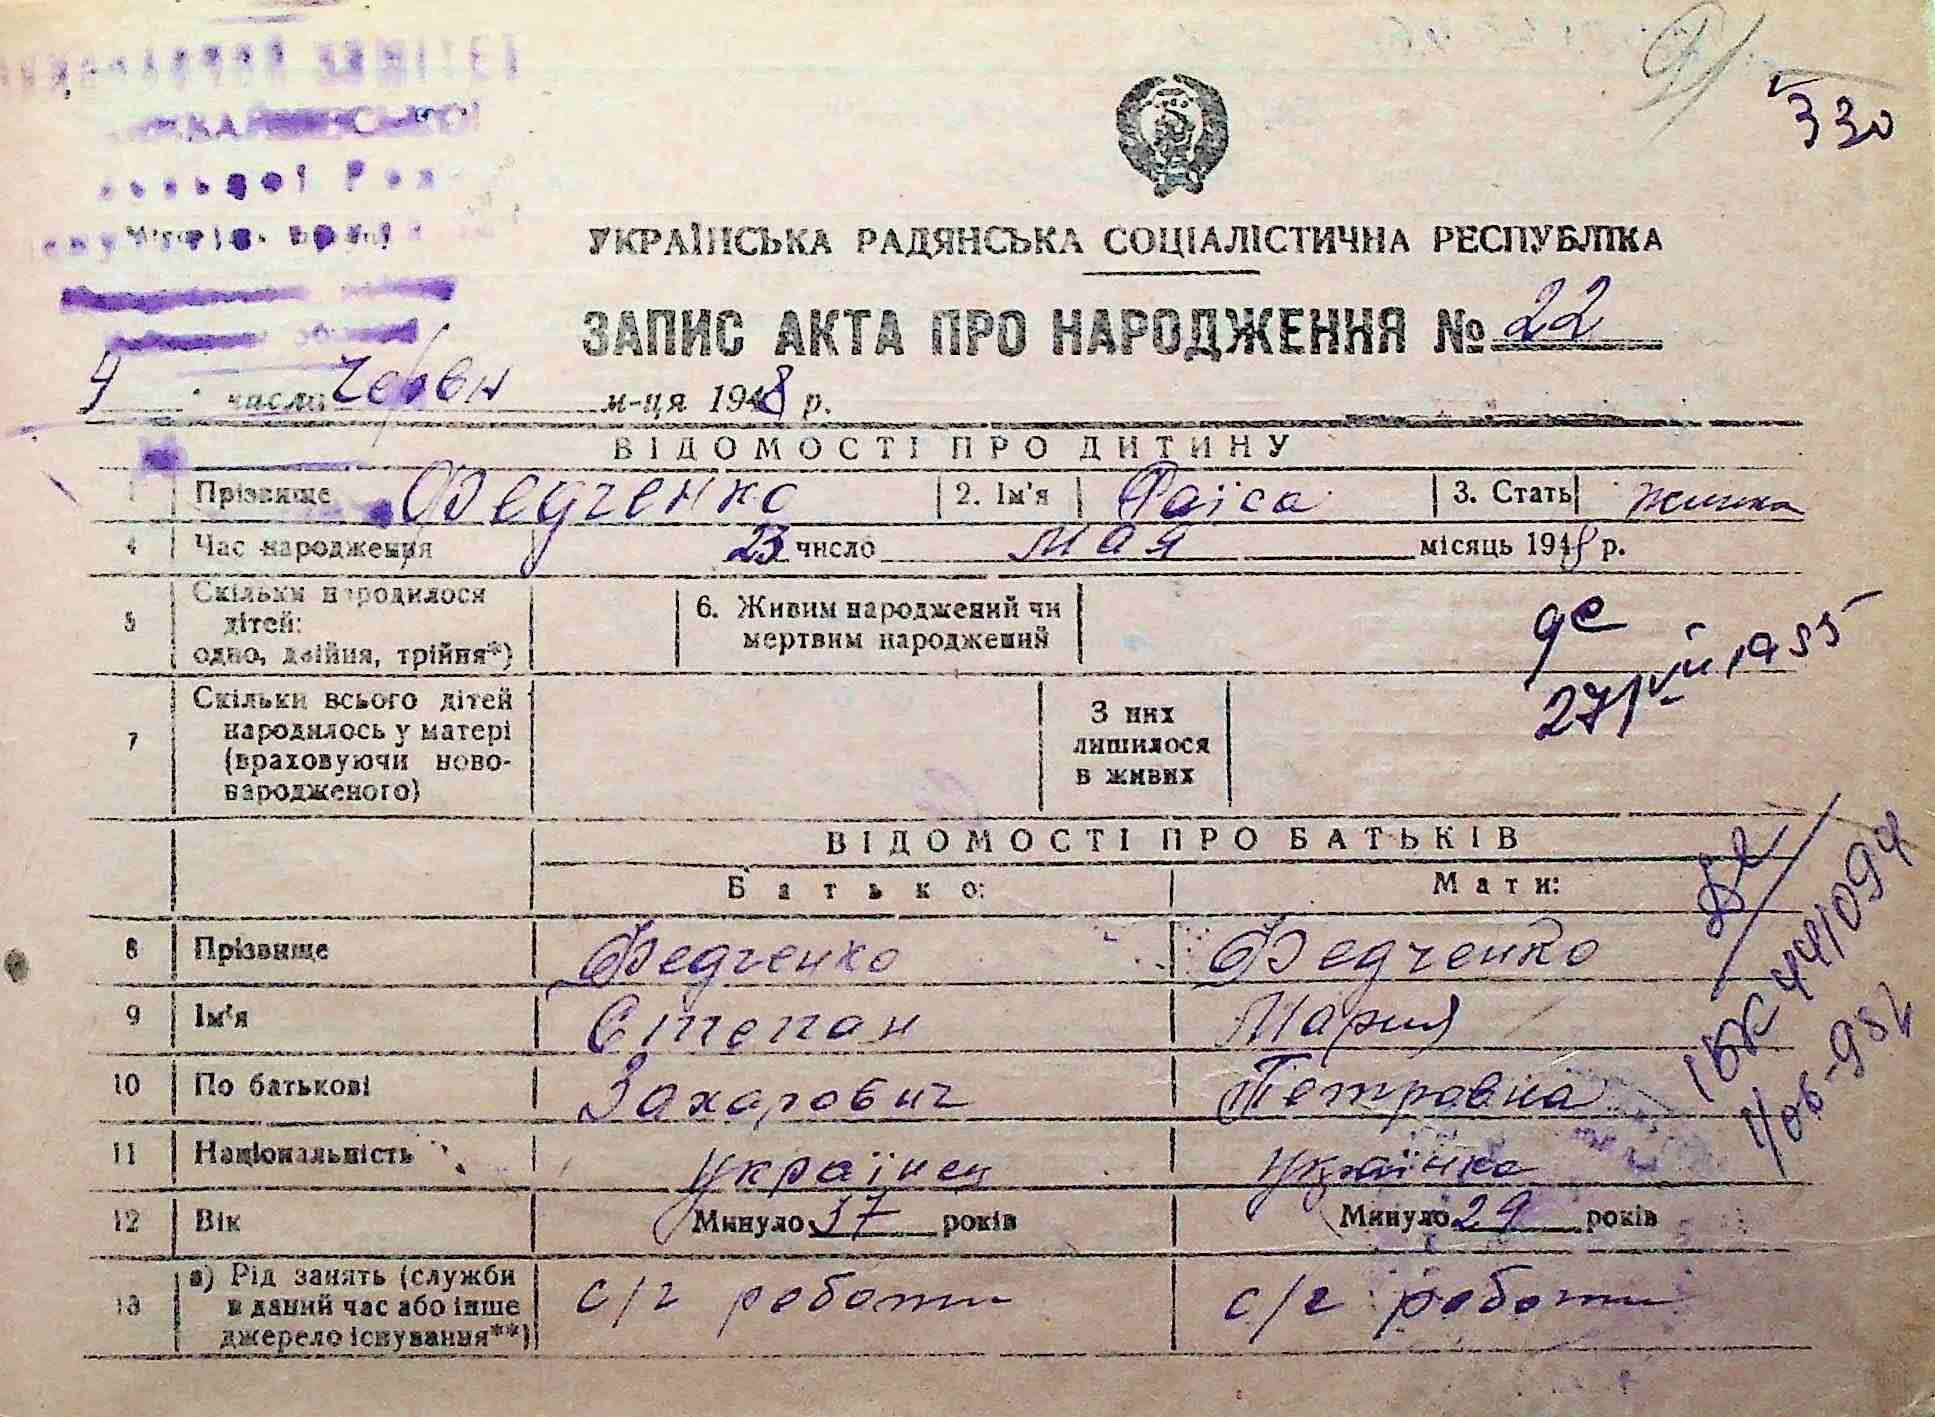 330
УКРАЇНСЬКА РАДЯНСЬКА СОЦІАЛІСТИЧНА РЕСПУБЛІКА
ЗАПИС АКТА ПРО НАРОДЖЕННЯ № 22
числа червн м-ця 1948 р.
ВІДОМОСТІ ПРО ДИТИНУ
1 Прізвище Федченко 2. Ім'я Раїса 3. Стать жинка
4 Час народження 23 число мая місяць 1948 р.
5 Скільки народилося дітей: одно, двійня, трійня*) 6. Живим народжений чи мертвим народжений
27/VII 1955
7 Скільки всього дітей народилось у матері (враховуючи новонародженого) З них лишилося в живих
ВІДОМОСТІ ПРО БАТЬКІВ
Батько: Мати:
8 Прізвище Федченко Федченко
9 Ім'я Степан Мария
10 По батькові Захарович Петровна
11 Національність українец українка
12 Вік Минуло 37 років Минуло 29 років
13 а) Рід занять (служби в даний час або інше джерело існування**) с/г роботи с/г роботи